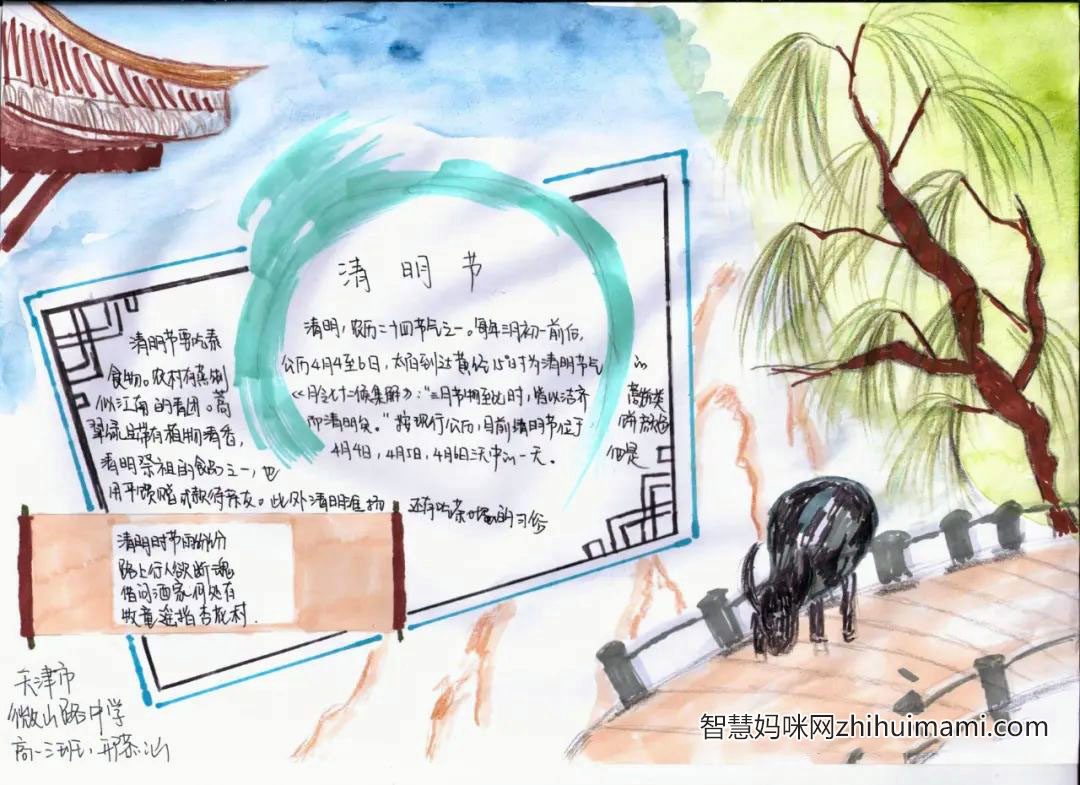 清明节
清明，农历二十四节气之一。每年三月初一前后，
公历4月4至6日，太阳到达黄经15°时为清明节气
《月令七十二候集解》："三月节物至此时，皆以洁齐
而清明矣。"按现行公历，目前清明节位于
4月4日，4月5日，4月6日三天中的一天。
清明节要吃寒
食物。农村有蒸制 的
似江南的青团。蒿 蒿饼类
翠绿且带有植物清香，
清明祭祖的食品之一，也 但是
用于馈赠或款待亲友。此外清明 还有吃 的习俗
清明时节雨纷纷
路上行人欲断魂
借问酒家何处有
牧童遥指杏花村.
天津市
微山路中学
高一三班
智慧妈咪网zhihuimami.com